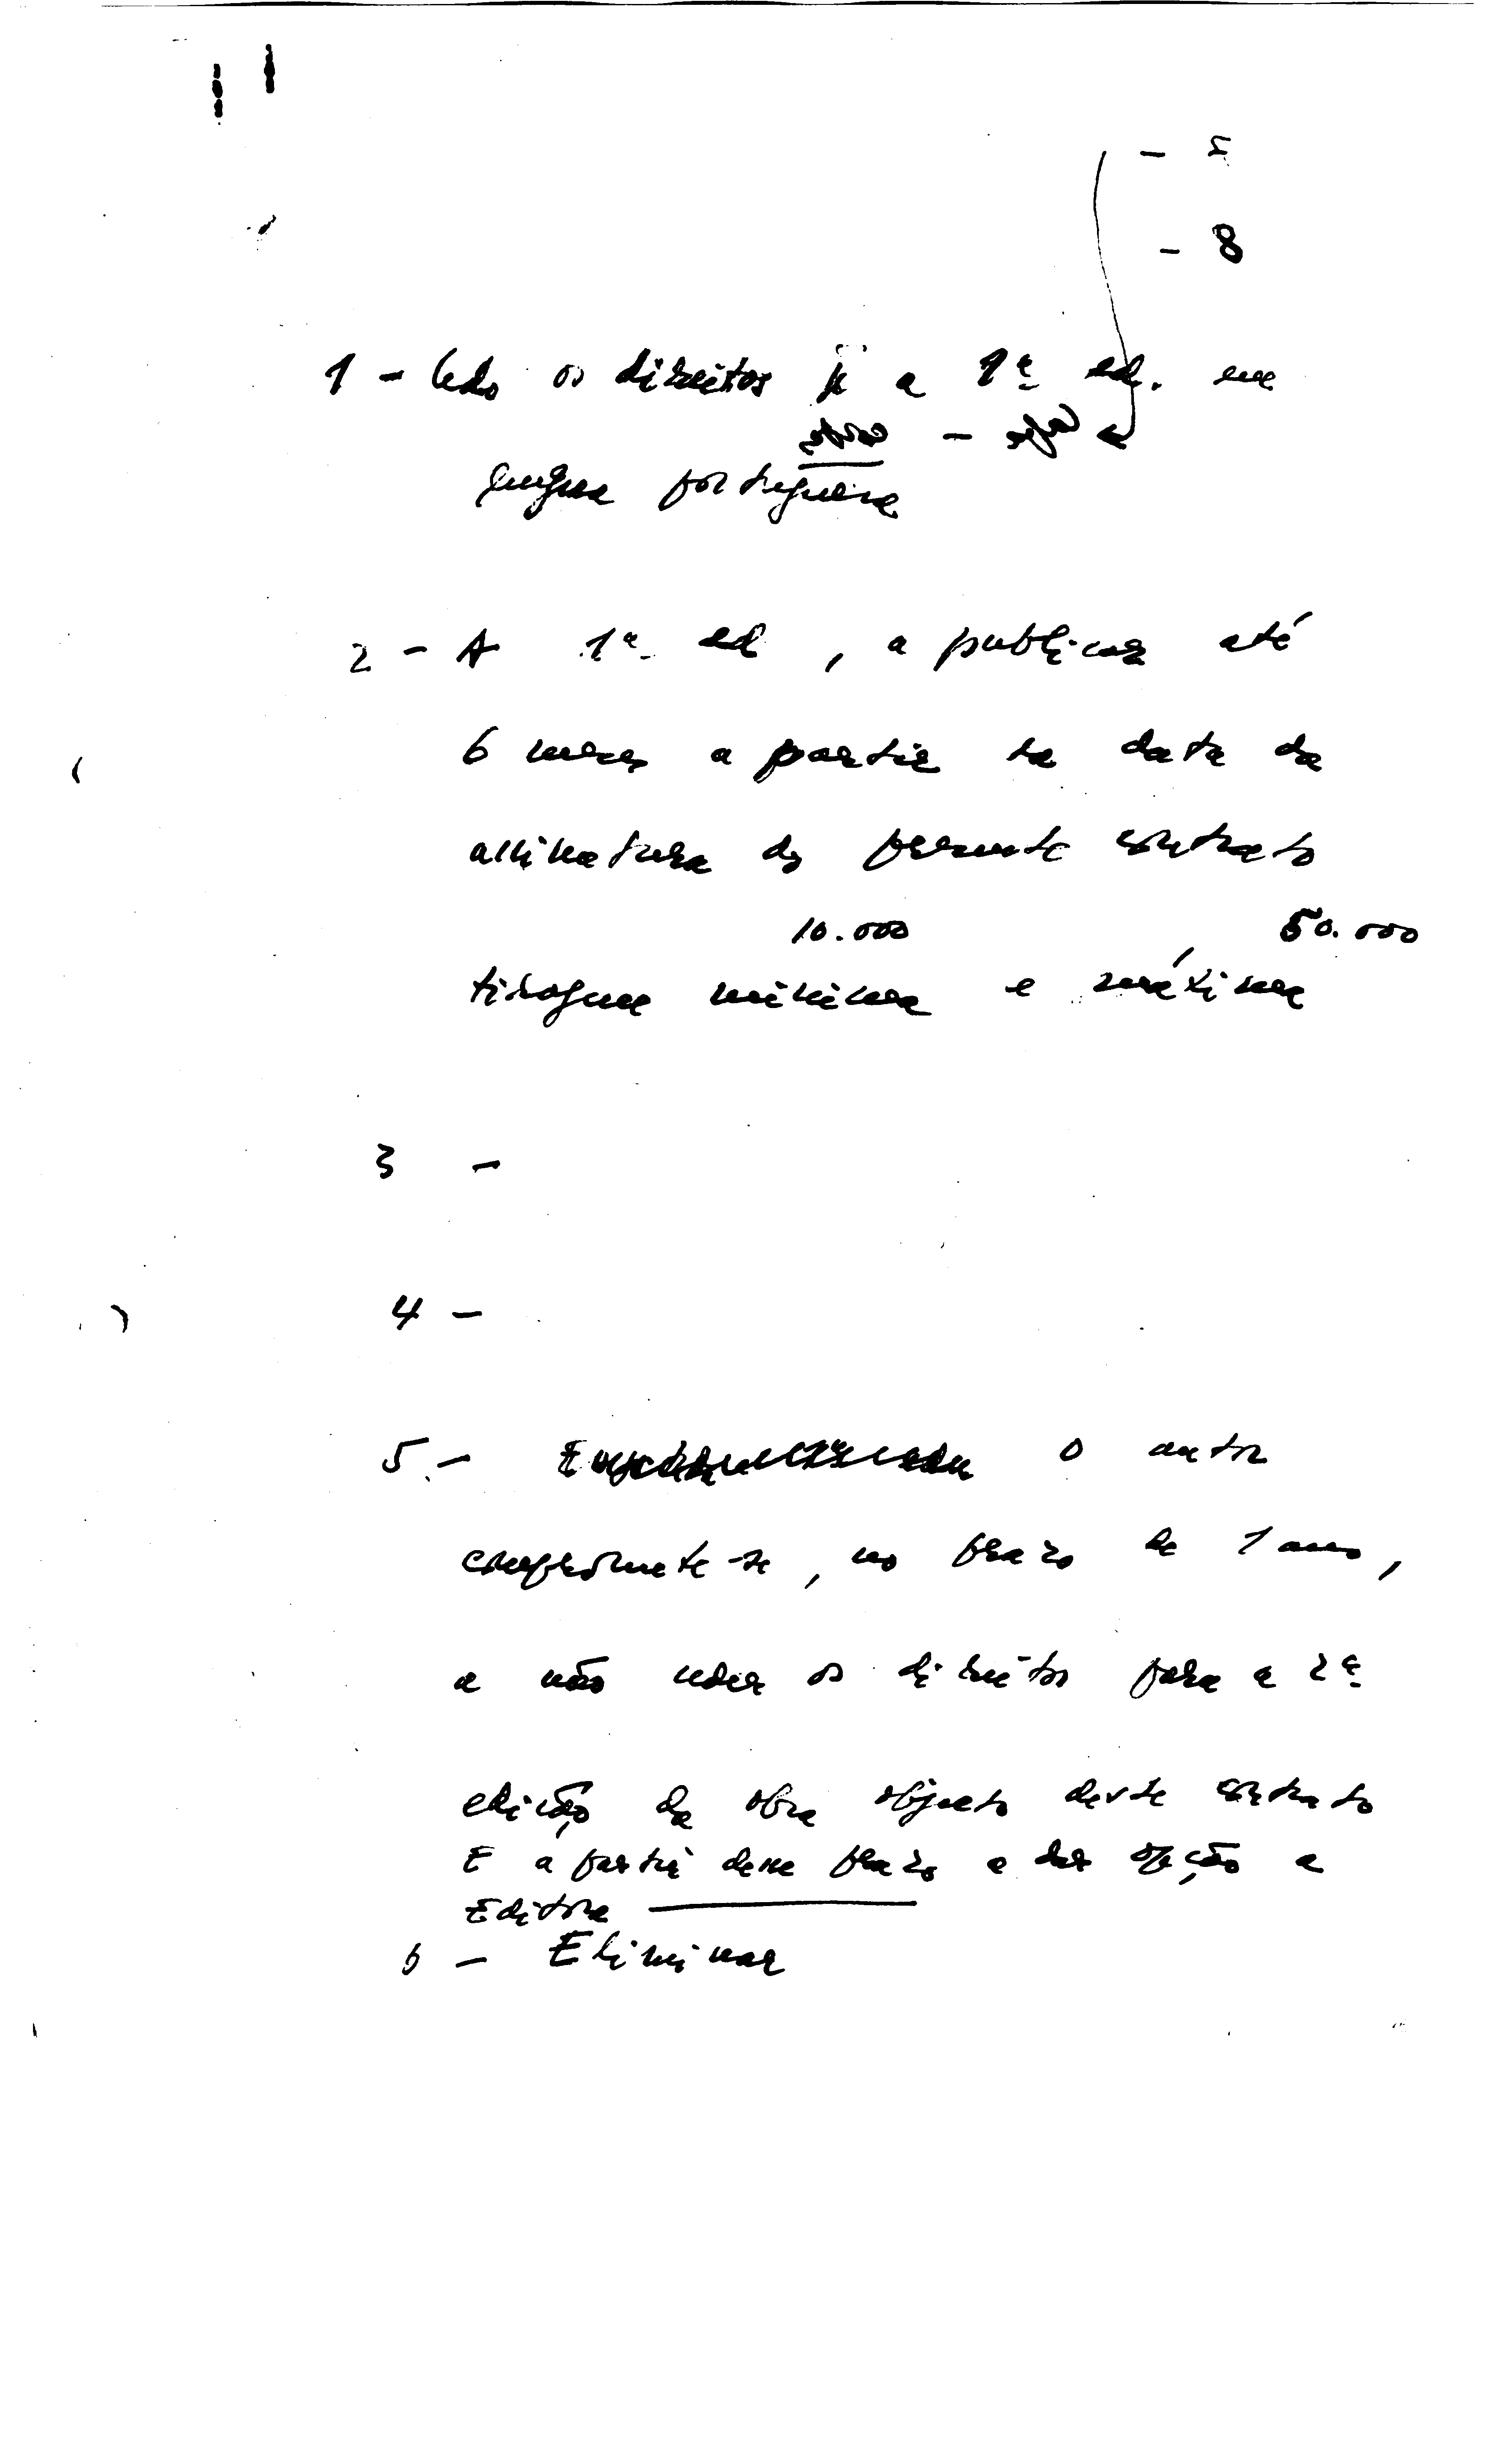 - 5
- 8
1 - Cedo os direitos p/ a 1ª ed. em
língua portuguesa
2 - A 1ª ed, a publicar até
6 meses a partir da data da
assinatura do presente contrato
10.000 50.000
tiragem mínima e máxima
3 -
4 -
5 - O autor
compromete-se, no prazo de 1 ano,
a não ceder os direitos para a 2ª
edição da obra objeto deste contrato
E a partir desse prazo a dar opção a
Editora
6 - Eliminar